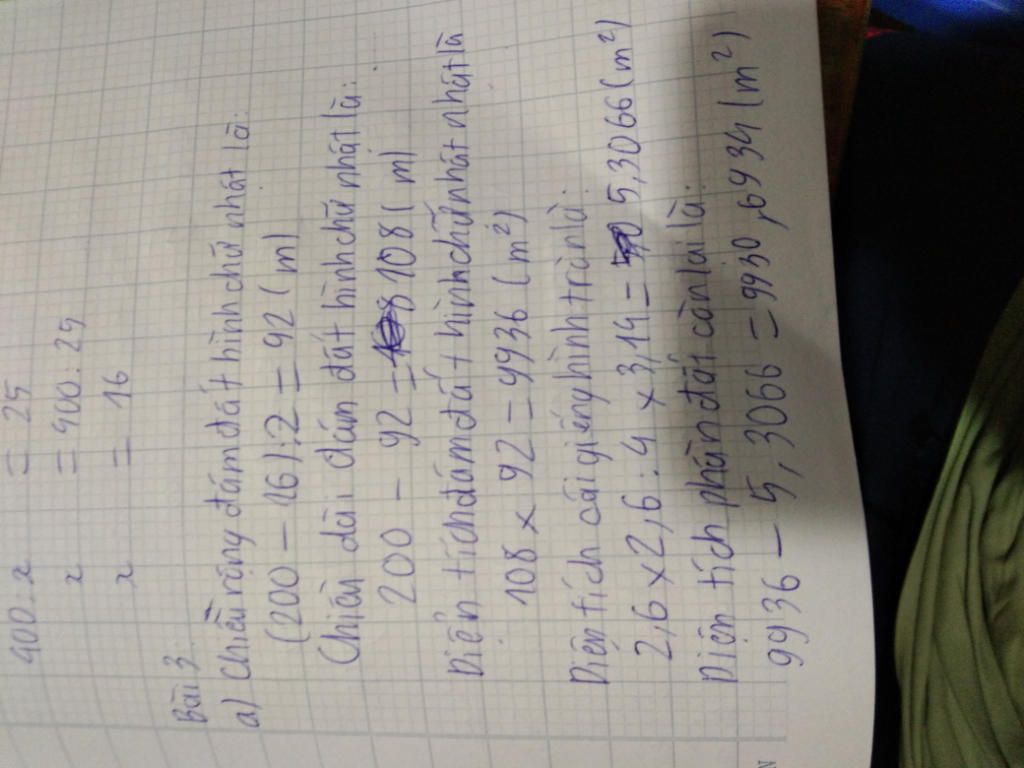 400 : x = 25
x = 400 : 25
x = 16
Bài 3
a) Chiều rộng đám đất hình chữ nhật là:
(200 - 16) : 2 = 92 (m)
Chiều dài đám đất hình chữ nhật là:
200 - 92 = 108 (m)
Diện tích đám đất hình chữ nhật nhật là
108 x 92 = 9936 (m²)
Diện tích cái giếng hình tròn là:
2,6 x 2,6 : 4 x 3,14 = 5,3066 (m²)
Diện tích phần đất còn lại là:
9936 - 5,3066 = 9930,6934 (m²)